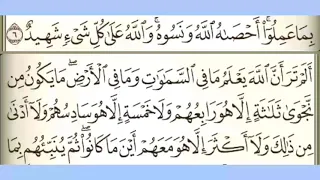 بِمَا عَمِلُوٓا۟ أَحْصَىٰهُ ٱللَّهُ وَنَسُوهُ وَٱللَّهُ عَلَىٰ كُلِّ شَىْءٍ شَهِيدٌ ٦
أَلَمْ تَرَ أَنَّ ٱللَّهَ يَعْلَمُ مَا فِى ٱلسَّمَٰوَٰتِ وَمَا فِى ٱلْأَرْضِ ۖ مَا يَكُونُ مِن
نَّجْوَىٰ ثَلَٰثَةٍ إِلَّا هُوَ رَابِعُهُمْ وَلَا خَمْسَةٍ إِلَّا هُوَ سَادِسُهُمْ وَلَآ أَدْنَىٰ
مِن ذَٰلِكَ وَلَآ أَكْثَرَ إِلَّا هُوَ مَعَهُمْ أَيْنَ مَا كَانُوا۟ ۖ ثُمَّ يُنَبِّئُهُم بِمَا